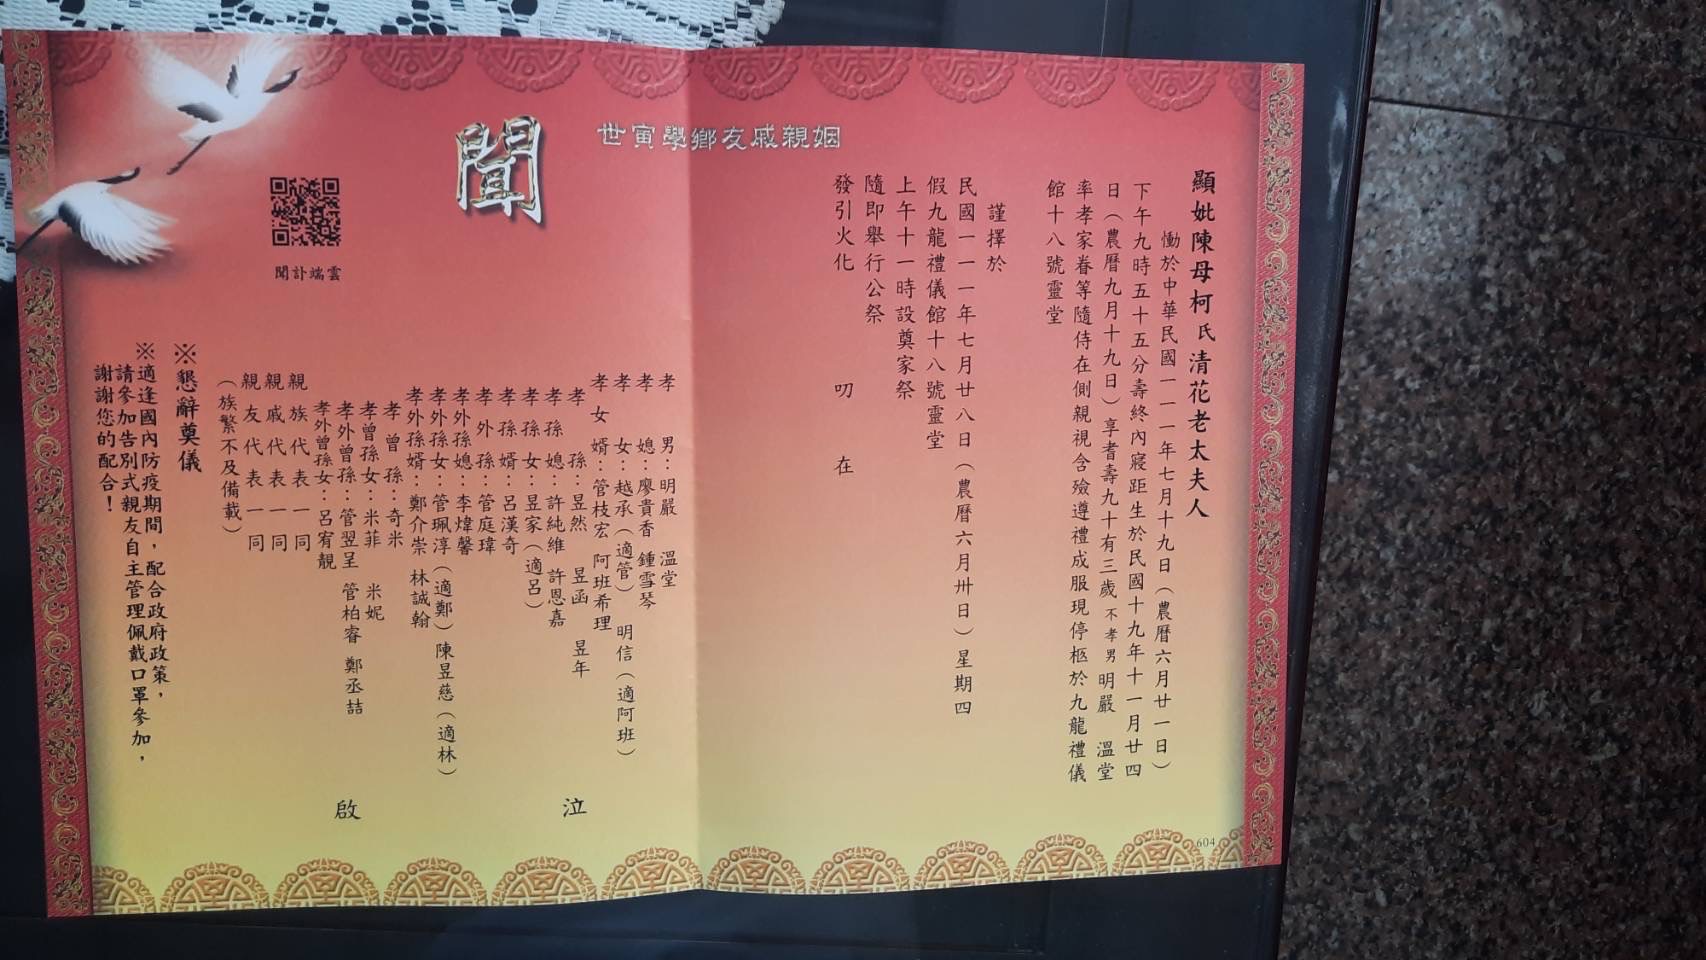 顯妣陳母柯氏清花老太夫人
慟於中華民國一一一年七月十九日（農曆六月廿一日）
下午九時五十五分壽終內寢距生於民國十九年十一月廿四
日（農曆九月十九日）享耆壽九十有三歲不孝男明嚴　溫堂
率孝家眷等隨侍在側親視含殮遵禮成服現停柩於九龍禮儀
館十八號靈堂
謹擇於
民國一一一年七月廿八日（農曆六月卅日）星期四
假九龍禮儀館十八號靈堂
上午十一時設奠家祭
隨即舉行公祭
發引火化　叨　在
姻親戚友鄉學寅世
聞
孝男：明嚴　溫堂
孝媳：廖貴香　鍾雪琴
孝女：越承（適管）　明信（適阿班）
孝女婿：管枝宏　阿班希理
孝孫：昱然　昱函　昱年
孝孫媳：許純維　許恩嘉
孝孫女：昱家（適呂）
孝孫婿：呂漢奇
孝外孫：管庭瑋
孝外孫媳：李煒馨
孝外孫女：管珮淳（適鄭）　陳昱慈（適林）
孝外孫婿：鄭介崇　林誠翰
孝曾孫：奇米
孝曾孫女：米菲　米妮
孝外曾孫：管翌呈　管柏睿　鄭丞喆
孝外曾孫女：呂宥靚
泣
啟
親族代表一同
親戚代表一同
親友代表一同
（族繁不及備載）
雲端訃聞
※懇辭奠儀
※適逢國內防疫期間，配合政府政策，
請參加告別式親友自主管理佩戴口罩參加，
謝謝您的配合！
604